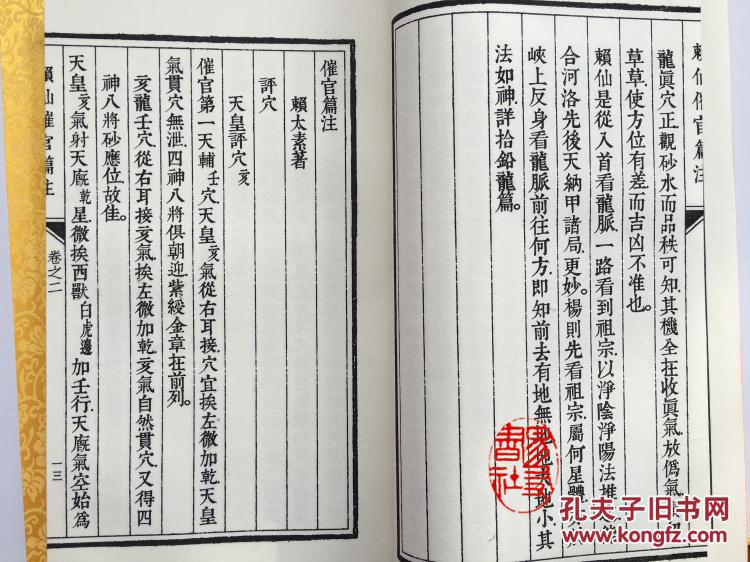 賴仙催官篇注
龍眞穴正.觀砂水而品秩可知.其機全在收眞氣.放僞氣.切
草草.使方位有差.而吉凶不准也。
賴仙是從入首看龍脈.一路看到祖宗.以淨陰淨陽法推
合河洛先後天納甲諸局.更妙。楊則先看祖宗.屬何星體.
峽上反身看龍脈前往何方.即知前去有地無地.地大地小.其
法如神.詳拾鉛龍篇。
催官篇注
賴太素著
評穴
天皇評穴亥
催官第一天輔壬穴.天皇亥氣從右耳接.穴宜挨左微加乾.天皇
氣貫穴無泄.四神八將俱朝迎.紫綬金章在前列。
亥龍壬穴.從右耳接亥氣.挨左微加乾.亥氣自然貫穴.又得四
神八將砂應位故佳。
天皇亥氣射天廐乾星.微挨西獸白虎邊加壬行.天廐氣空始爲
賴仙催官篇注
卷之二
一三
書社
孔夫子旧书网
kongfz.com